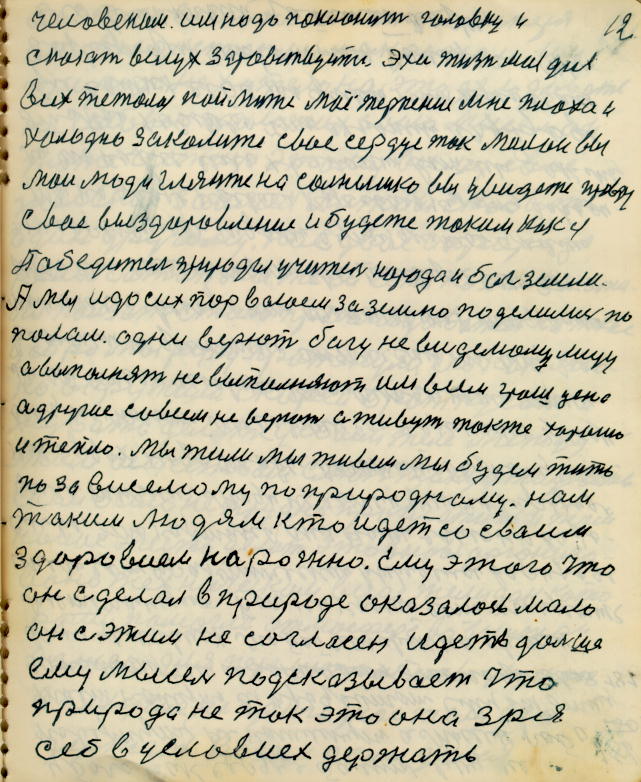 12
человеком. им надо поклонит головку и
сказат вслух здравствуйте. Эхи жизн моя для
всих тежолая поймите моё терпение мне плоха и
холодно заколите свое сердце так малои вы
мои люди гляньте на солнышко вы увидете правду
свое выздоровление и будете таким как я
Победител природы учител народа и бог земли.
А мы идо сих пор воюем за землю поделимся по
полам. одни верют богу не видемому лицу
авыполнят не выполняют им всем грош цена
адругие совсем не верют аживут также хорошо
итепло. Мы жили мы живем мы будем жить
по зависемому по природному. нам
таким людям кто идет со своим
здоровием на рожно. Ему этого что
он сделал в природе оказалось мало
он с этим не согласен идеть дальше
ему мысел подсказывает что
природа не так это она зря
себ в условиех держать